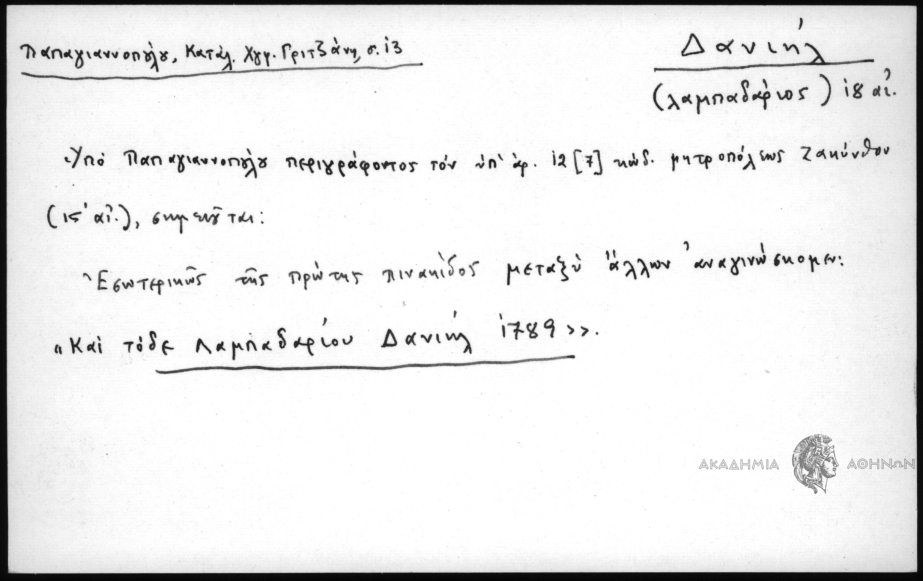 Παπαγιαννοπούλου, Κατάλ. Χγφ. Γριτζάνη, σ. 13
Δανιήλ
(λαμπαδάριος) 18 αἰ.
Ὑπὸ Παπαγιαννοπούλου περιγράφοντος τὸν ὑπ' ἀρ. 12 [7] κώδ. μητροπόλεως Ζακύνθου
(ις' αἰ.), σημειοῦται:
Ἐσωτερικῶς τῆς πρώτης πινακίδος μεταξὺ ἄλλων ἀναγινώσκομεν:
«Καὶ τόδε Λαμπαδαρίου Δανιήλ 1789».
ΑΚΑΔΗΜΙΑ ΑΘΗΝΩΝ